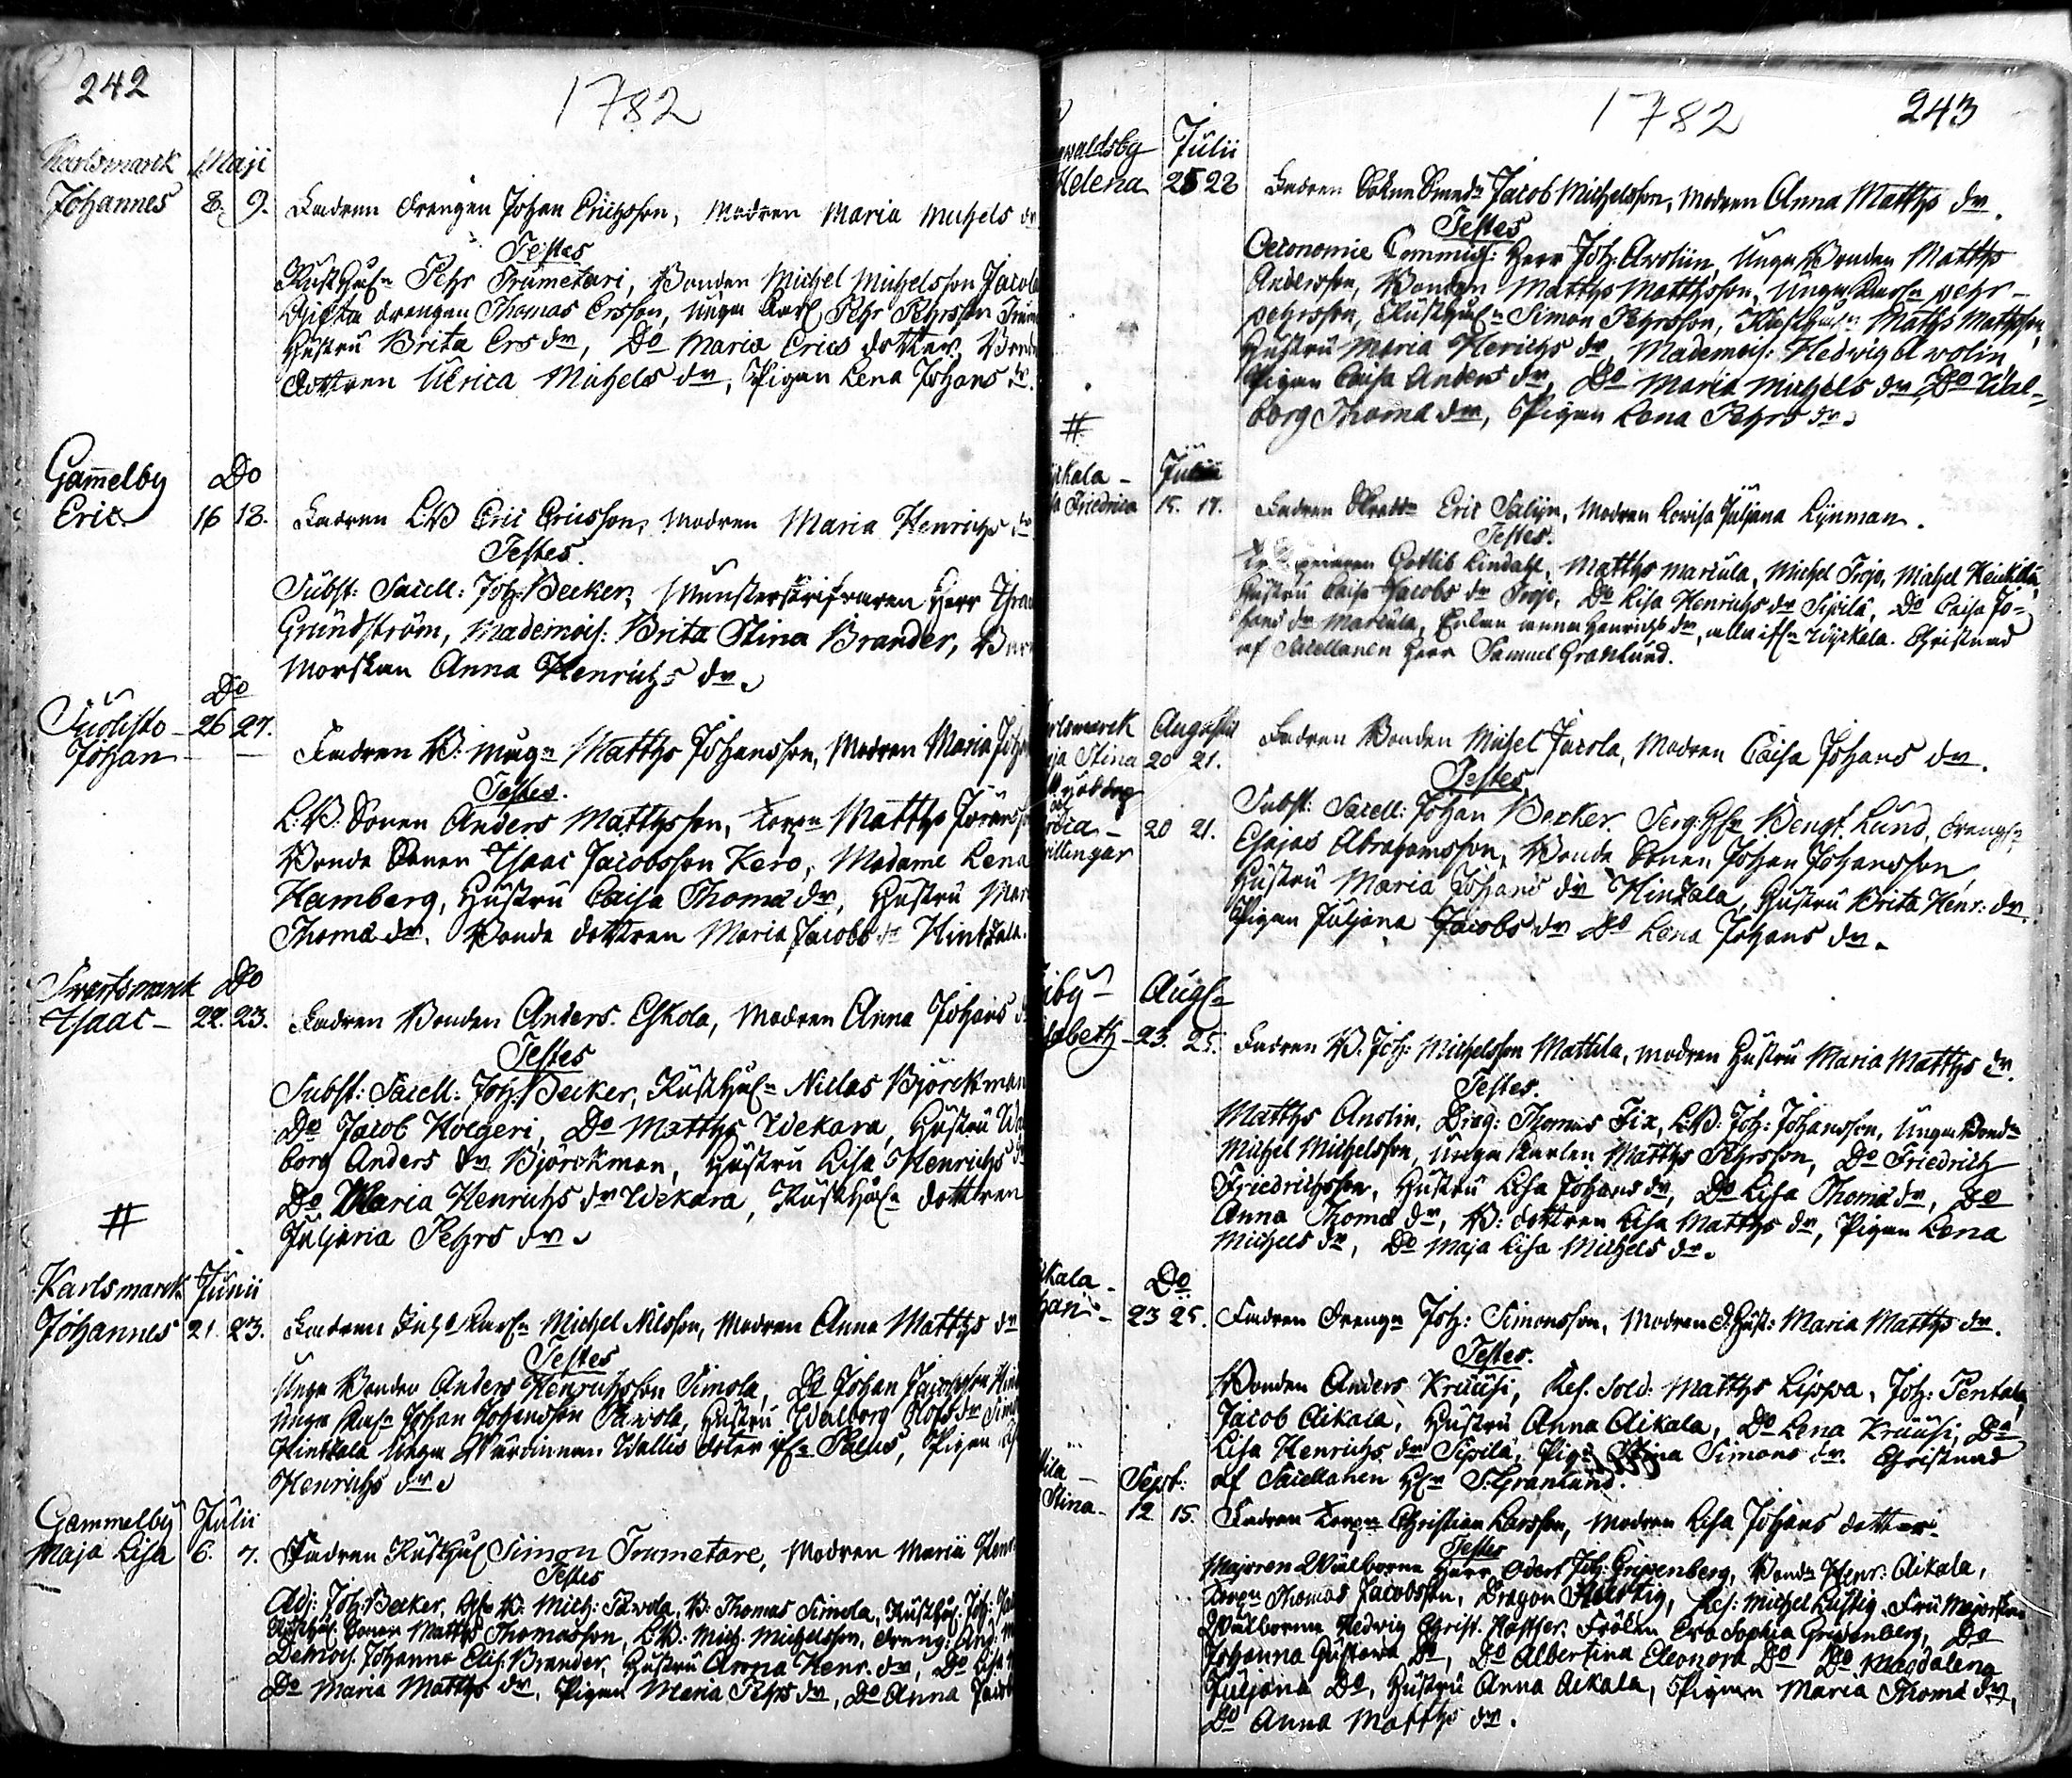 242
1782
Karlsmarck Maji
Johannes 8. 9. Fadren Drengen Johan Erichsson, Modren Maria Michels dr
Testes
Rusthåln Pehr Trumetari, Bonden Michel Michelsson Jacola
Gifta drengen Thomas Ersson, Unga Karl Pehr Pehrsson
Hustru Brita Ers dr, Do Maria Erics dotter
dottren Ulrica Michels dr, Pigan Lena Johans dr.
Gam̄elby Do
Eric 16 18. Fadren L:B Eric Ericsson, Modren Maria Henrichs dr
Testes.
Subst: Sacell: Joh: Becker, Munsterskrifvaren Herr
Grundström, Mademois: Brita Stina Brander,
Morskan Anna Henrichs dr.
Do
Suolisto 26 27.
Johan Fadren B: mågn Matths Johansson, Modren Maria
Testes.
L:B: Sonen Anders Mattsson, Torpn Matths
Bonde Sonen Isaac Jacobsson Kero, Madame Lena
Hamberg, Hustru Caisa Thomæ dr, Hustru
Thomæ dr. Bonde dottren Maria Jacobs dr Hintzala.
Svartsmarck Do
Isaac 22. 23. Fadren Bonden Anders Eskola, Modren Anna Johans
Testes
Subst: Sacell: Joh: Becker, Rusthåln Niclas Björckman
Do Jacob Hoegeri, Do Matths Wekara, Hustru
borg Anders dr Björckman, Hustru Lisa Henrichs
Do Maria Henrichs dr Wekara, Rusthåln dottren
Juljana Pehrs dr.
#
Karlsmarck Junii
Johannes 21. 23. Fadren Michel Nilsson, Modren Anna Matths dr
Testes
Unga Bonden Anders Henrichsson Simola, Do Johan
Unga Karln Johan Johansson Pavola, Hustru Walborg Olofs dr
Hintzala Unga Wallis doter Palus, Pigan
Henrichs dr.
Gammelby Julii
Maja Lisa 6. 7. Fadren Rusthål Simon Trumetare, Modren Maria
Testes
Adj: Joh: Becker, B: Mich: Pavola, B: Thomas Simola, Rusthål: Joh:
Sonen Matths Thomasson, L:B: Mich. Michelsson, dreng:
Demois. Johanna Elis: Brander, Hustru Anna Henr. dr, Do Lisa
Do Maria Matths dr, Pigan Maria Pehrs dr, Do Anna
1782 243
waldsby Julii
Helena 25 28 Fadren Sokne Smedn Jacob Michelsson, Modren Anna Matths dr.
Testes
Oeconomie Commiss: Herr Joh: Avolin, Unga Bonden Matths
Andersson, Bonden Matths Matthsson, Unga Karln pehr
pehrsson, Rusthåln Simon Pehrsson, Rusthåln Maths Mathsson,
Hustru Maria Herichs dr, Mademois: Hedwig Avolin,
Pigan Caisa Anders dr, Do Maria Michels dr, Do Wal-
borg Thomæ dr, Pigan Lena Pehrs dr.
#
kala - Julii
Friedrica 15. 17. Fadren Skraddn Eric Salijn, Modren Lovisa Juljana Lijnman.
Testes.
Gotlib Lindahl, Matths Marcula, Michel Trojo, Michel Heickilä,
Hustru Caisa Jacobs dr Trojo, Do Lisa Henrichs dr Sipilä, Do Caisa Jo-
hans dr Marcula, Enkan Anna Henrichs dr, alla ifrn Wyckala. Christnad
af Sacellanen Herr Samuel Granlund.
rlsmarck Augusti
ja Stina 20 21. Fadren Bonden Michel Jacola, Modren Caisa Johans dr.
Testes
20 21.
illingar
Subst: Sacell: Johan Becker. Serg: Hr Bengt Lund,
Esajas Abrahamsson, Bonde Sonen Johan Johansson
Hustru Maria Johans dr Hintzala, Hustru Brita Henr: dr
Pigan Juljana Jacobs dr Do Lena Johans dr.
iby Augs
abeth 23. 25. Fadren B. Joh: Michelsson Mattila, modren Hustru Maria Matths dr.
Testes.
Matths Anolin, Drag: Thomas Fix, L:B: Joh: Johansson, Unga Bondn
Michel Michelsson, Unga Karlen Matths Pehrsson, Do Friedrich
Friedrichsson, Hustru Lisa Johans dr, Do Lisa Thomæ dr, Do
Anna Thomæ dr, B: dottren Lisa Matths dr, Pigan Lena
Michels dr, Do Maja Lisa Michels dr.
kala Do
han 23 25. Fadren Drengn Joh: Simonsson, Modren d: Hust: Maria Matths dr.
Testes.
Bonden Anders Kruusi, Res. Sold: Matths Lippa, Joh: Pentala,
Jacob Aikala, Hustru Anna Aikala, Do Lena Kruusi, Do
Lisa Henrichs dr Sipilä, Pig: Stina Simons dr. Christnad
af Sacellanen Hr S: Granlund.
Sept:
Stina 12 15. Fadren Torpn Christian Larsson, Modren Lisa Johans dotter
Testes
Majoren Wälborne Herr Odert Joh: Gripenberg, Bondn Henr: Aikala,
Torpn Thomas Jacobsson, Dragon Hurtig, Res: Michel Lustig. Fru Majorskan
Wälborna Hedwig Christ. Fröken Eva Sophia Gripenberg, Do
Johanna Gustava Do, Do Albertina Eleonora Do Do Magdalena
Juljana Do, Hustru Anna Aikala, Pigan Maria Thomæ dr,
Do Anna Matths dr.